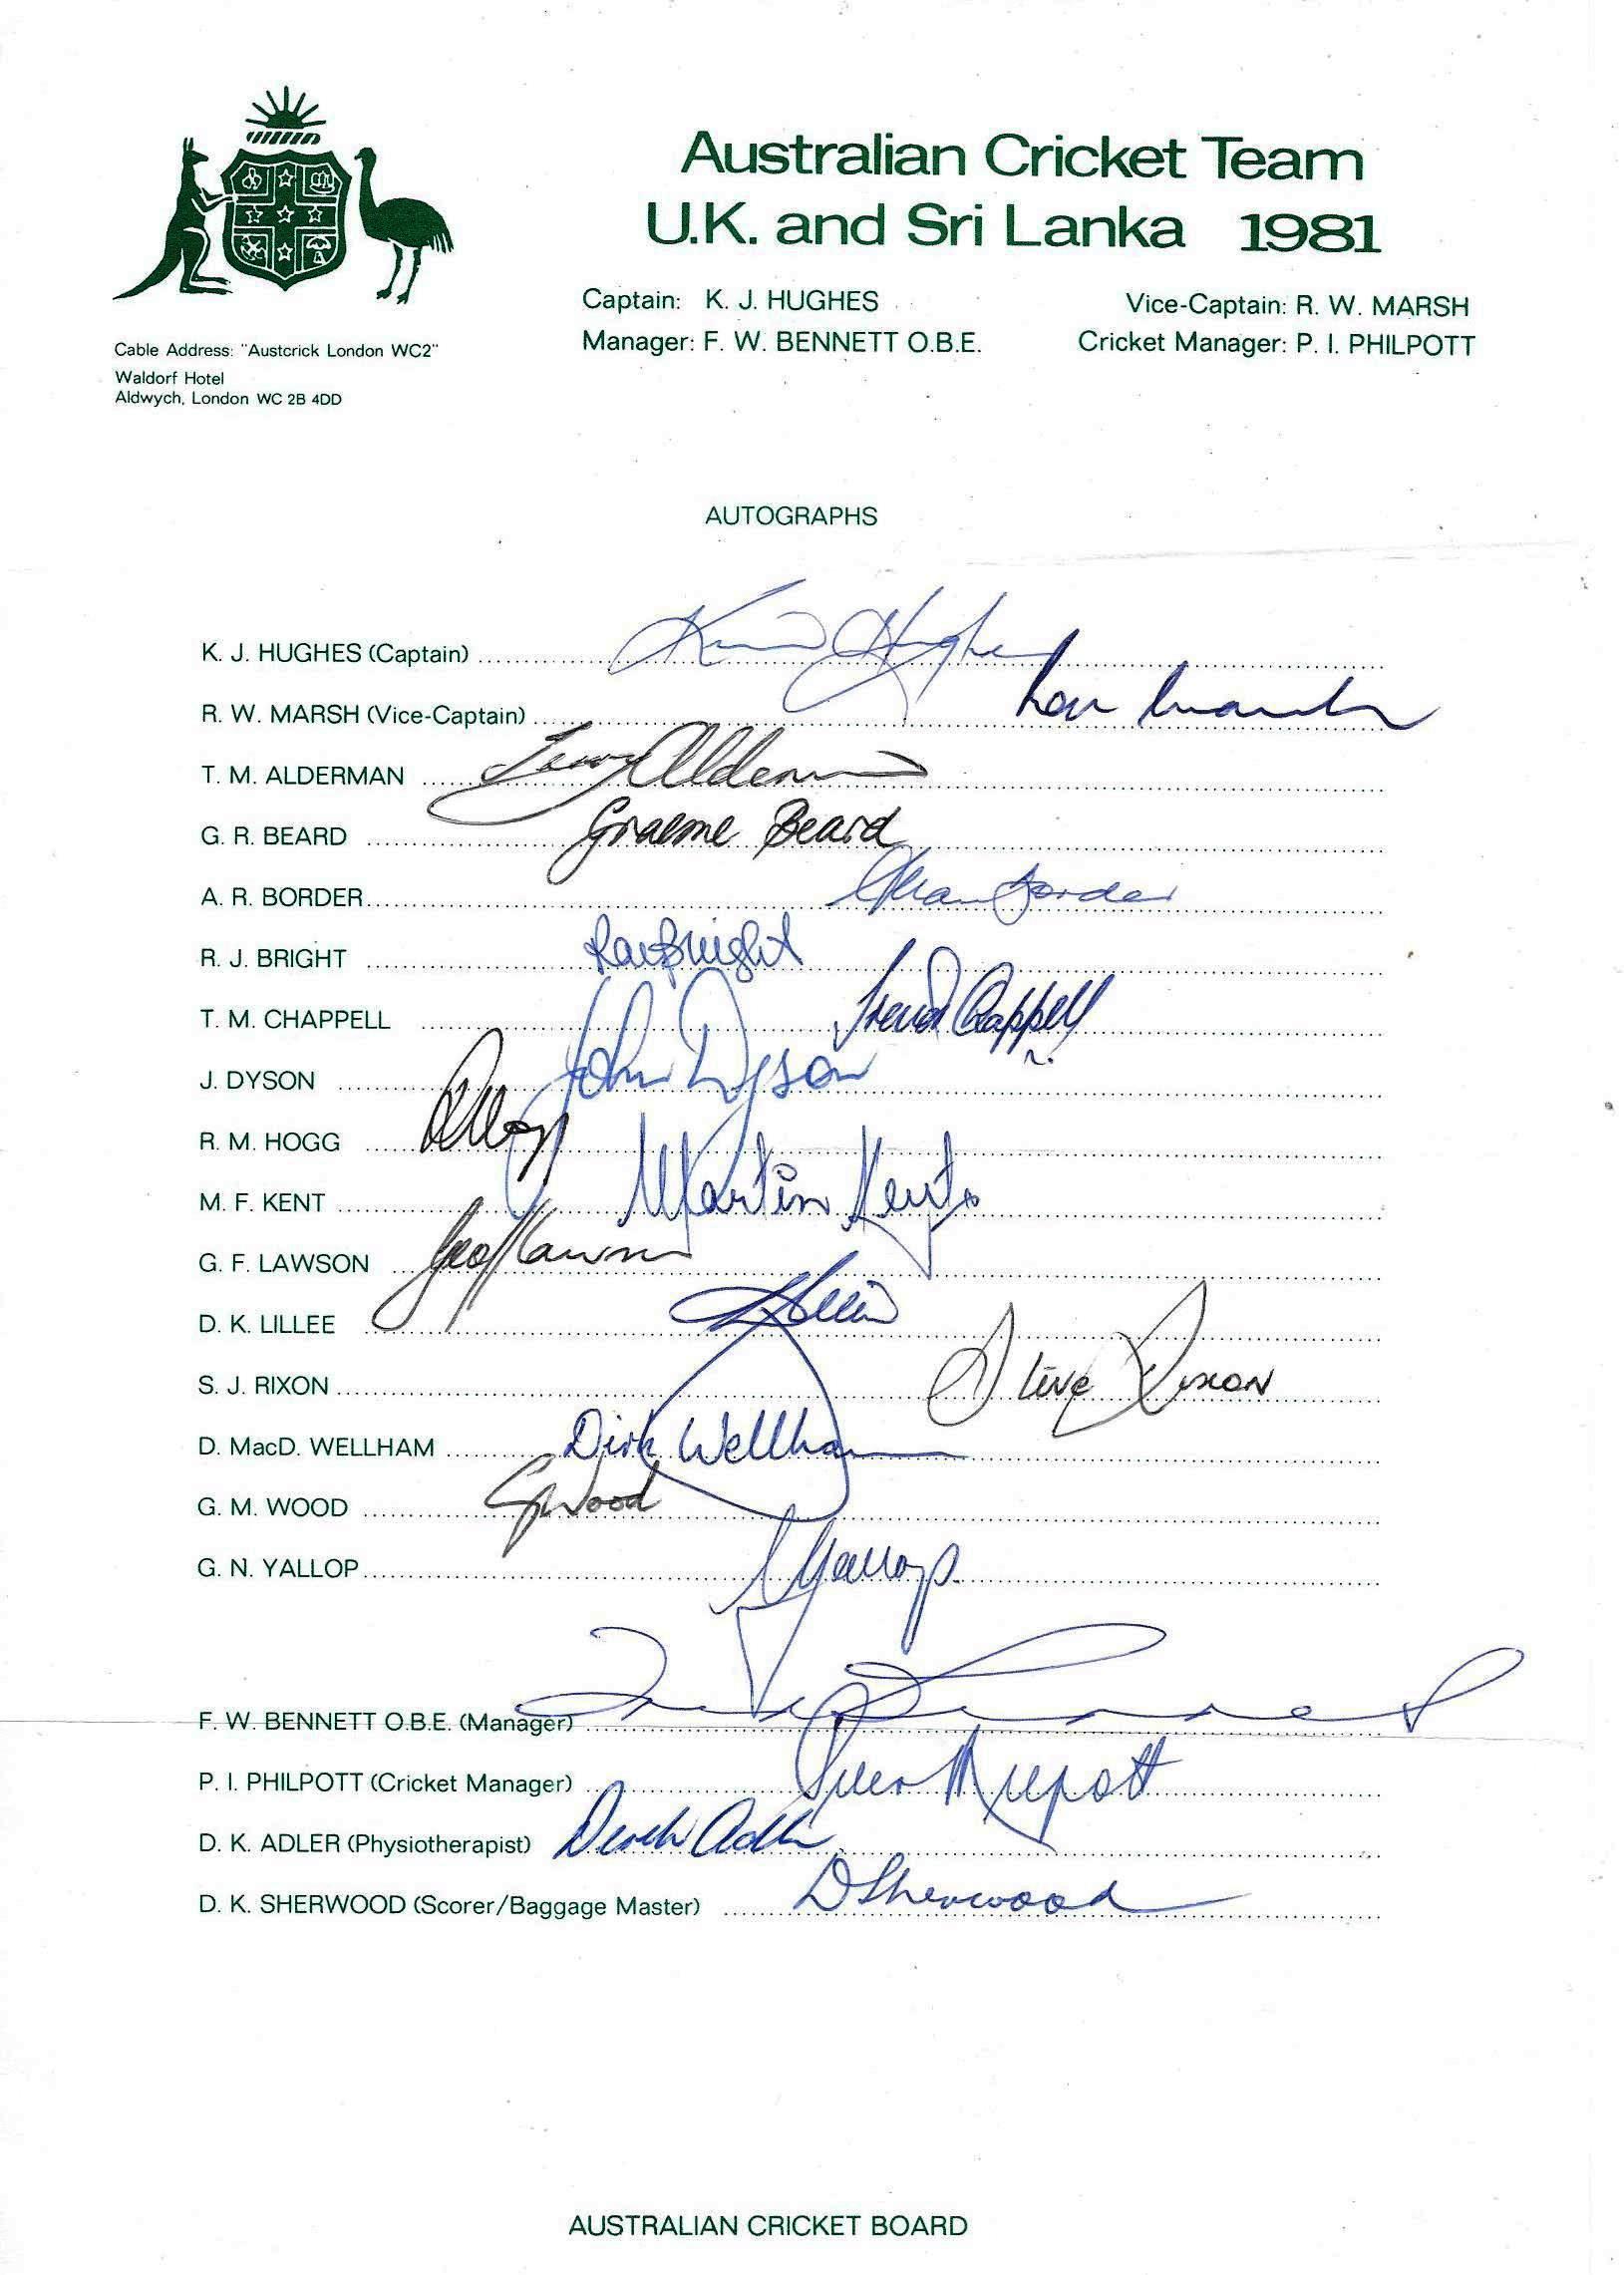 Australian Cricket Team
U.K. and Sri Lanka 1981
Captain: K. J. HUGHES
Vice-Captain: R. W. MARSH
Manager: F. W. BENNETT O.B.E.
Cricket Manager: P. I. PHILPOTT
Cable Address: "Austcrick London WC2"
Waldorf Hotel
Aldwych, London WC 2B 4DD
AUTOGRAPHS
K. J. HUGHES (Captain) Kim Hughes
R. W. MARSH (Vice-Captain) Rod Marsh
T. M. ALDERMAN Terry Alderman
G. R. BEARD Graeme Beard
A. R. BORDER Allan Border
R. J. BRIGHT Ray Bright
T. M. CHAPPELL Trevor Chappell
J. DYSON John Dyson
R. M. HOGG
M. F. KENT Martin Kent
G. F. LAWSON Geoff Lawson
D. K. LILLEE
S. J. RIXON Steve Rixon
D. MacD. WELLHAM Dirk Wellham
G. M. WOOD G Wood
G. N. YALLOP G Yallop
F. W. BENNETT O.B.E. (Manager)
P. I. PHILPOTT (Cricket Manager) Peter Philpott
D. K. ADLER (Physiotherapist) Derek Adler
D. K. SHERWOOD (Scorer/Baggage Master) D Sherwood
AUSTRALIAN CRICKET BOARD